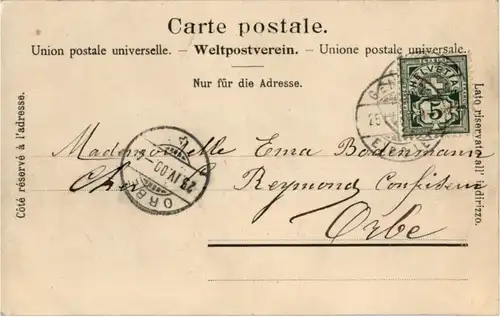 Carte postale.
Union postale universelle. – Weltpostverein. – Unione postale universale.
Nur für die Adresse.
Côté réservé à l'adresse.
Lato riservato all' indirizzo.
HELVETIA
5
25
ORBE
25.IV.00
Mademoiselle Ema Bodenmann
Chez Reymond Confiseur
Orbe